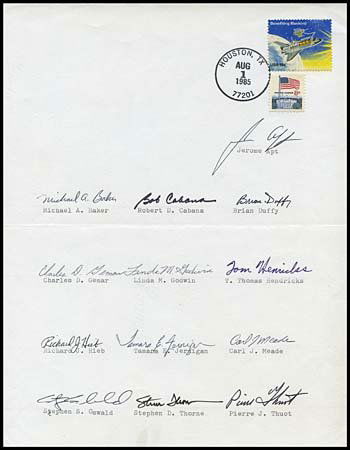 Benefiting Mankind
HOUSTON, TX
AUG
1
1985
77201
Jerome Apt
Michael A. Baker Bob Cabana Brian Duffy
Michael A. Baker Robert D. Cabana Brian Duffy
Charles D. Gemar Linda M. Godwin Tom Henricks
Charles D. Gemar Linda M. Godwin T. Thomas Hendricks
Richard J. Hieb Tamara E. Jernigan Carl J. Meade
Richard J. Hieb Tamara E. Jernigan Carl J. Meade
Steve Thorne Pierre Thuot
Stephen S. Oswald Stephen D. Thorne Pierre J. Thuot